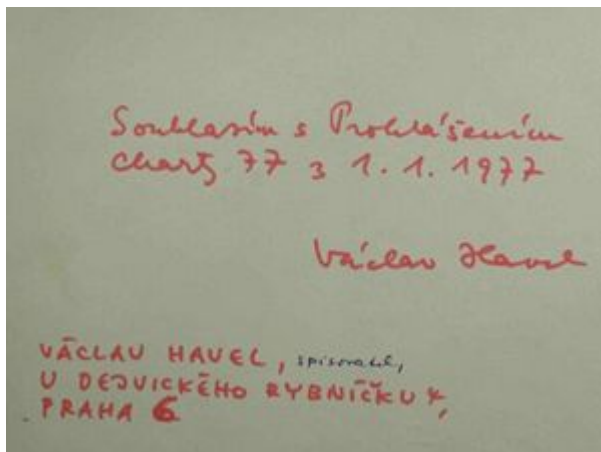 Souhlasím s Prohlášením
Charty 77 z 1. 1. 1977
Václav Havel
VÁCLAV HAVEL, spisovatel,
U DEJVICKÉHO RYBNÍČKU 4,
PRAHA 6